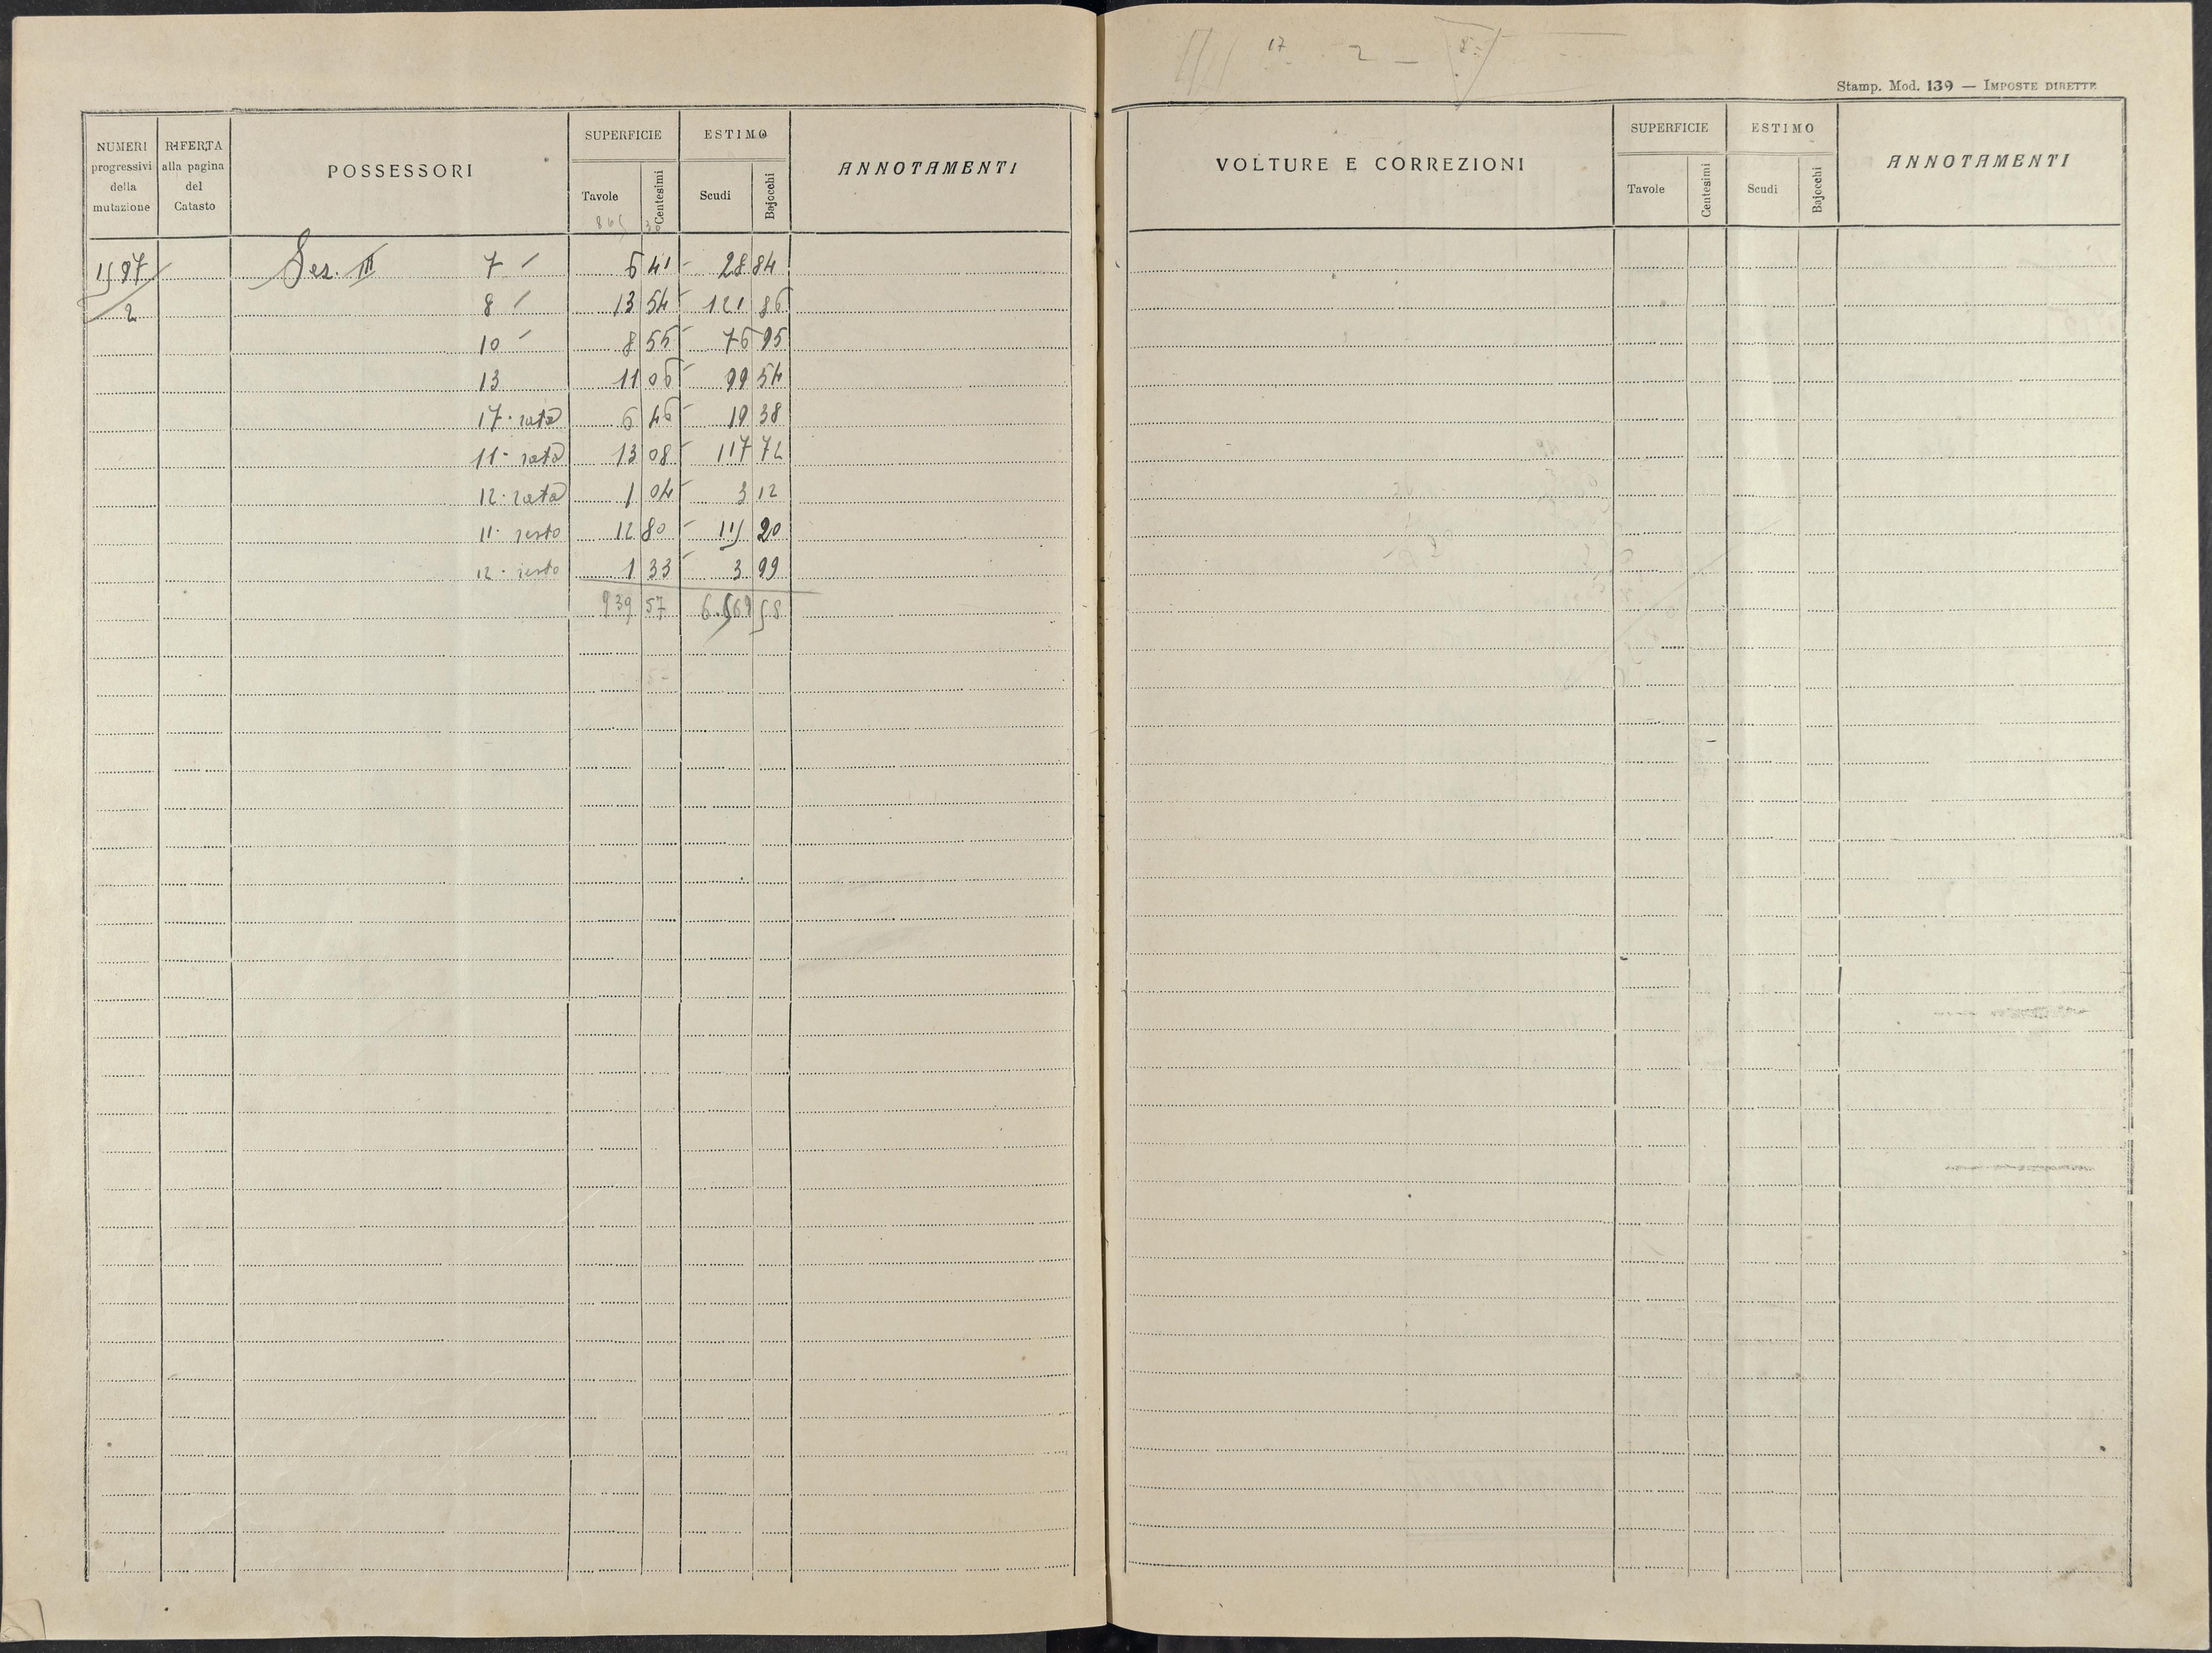 NUMERI progressivi della mutazione
RIFERTA alla pagina del Catasto
POSSESSORI
SUPERFICIE
Tavole
Centesimi
ESTIMO
Scudi
Bajocchi
ANNOTAMENTI
865
Sez. III 7 6 41 28 84
2 8 13 54 121 86
10 8 55 76 95
13 11 06 99 54
17 · rata 6 46 19 38
11 · rata 13 08 117 72
12 · rata 1 04 3 12
11 · resto 12 80 115 20
12 · resto 1 33 3 99
939 57 6.569 58
17 2 —
Stamp. Mod. 139 — IMPOSTE DIRETTE
VOLTURE E CORREZIONI
SUPERFICIE
Tavole
Centesimi
ESTIMO
Scudi
Bajocchi
ANNOTAMENTI